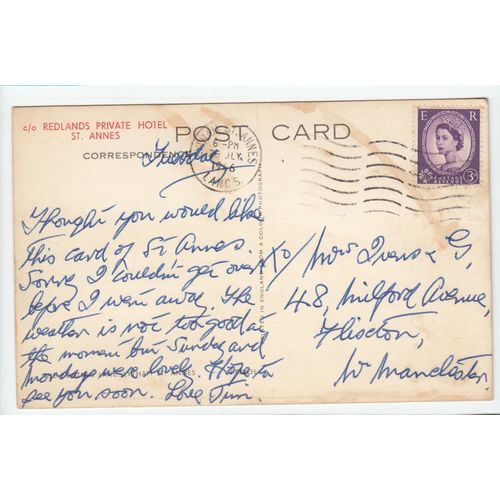 c/o REDLANDS PRIVATE HOTEL
ST. ANNES
POST CARD
CORRESPONDENCE
Tuesday
ST. ANNES
6 - PM
JLY
LANCS.
E R
POSTAGE REVENUE
3D
Thought you would like
this card of St Annes.
Sorry I couldn't get over
before I went away. The
weather is not too good at
the moment but Sunday and
Mondays were lovely. Hope to
see you soon. Love Jim.
IN ENGLAND FROM A COLOUR PHOTOGRAPH
Mrs & G,
48, Milford Avenue,
Flixton,
Nr Manchester.